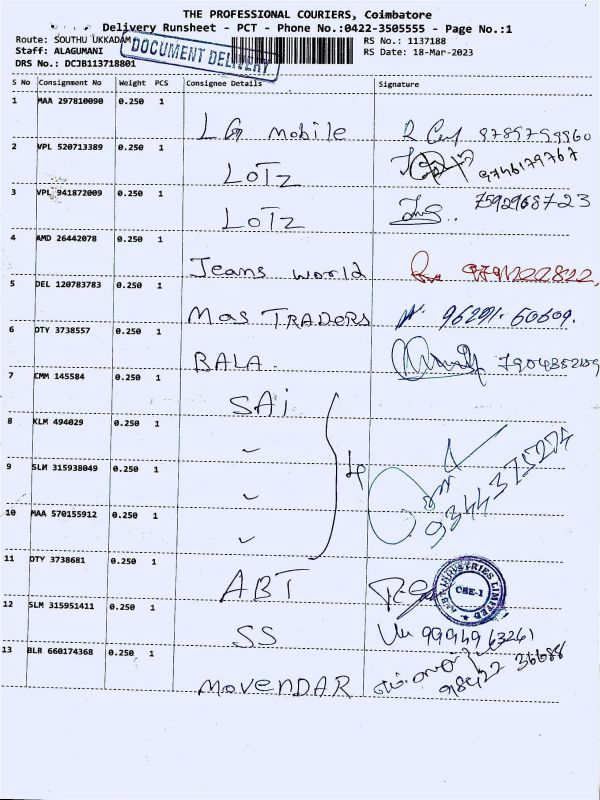 THE PROFESSIONAL COURIERS, Coimbatore
Delivery Runsheet - PCT - Phone No.:0422-3505555 - Page No.:1
Route: SOUTHU UKKADAM
RS No.: 1137188
Staff: ALAGUMANI
RS Date: 18-Mar-2023
DRS No.: DCJB113718801
DOCUMENT DELIVERY
S No Consignment No Weight PCS Consignee Details Signature
1 MAA 297810090 0.250 1
LG mobile
2 VPL 520713389 0.250 1
LOTZ 9746179767
3 VPL 941872009 0.250 1
LOTZ 7592968723
4 AMD 26442078 0.250 1
Jeans world
5 DEL 120783783 0.250 1
Mas TRADERS
6 DTY 3738557 0.250 1
BALA
7 CMM 145584 0.250 1
SAi
8 KLM 494029 0.250 1
9 SLM 315938049 0.250 1
4
9344375274
10 MAA 570155912 0.250 1
11 DTY 3738681 0.250 1
ABT
INDUSTRIES LIMITED
CBE-1
12 SLM 315951411 0.250 1
SS 99949 63261
13 BLR 660174368 0.250 1
MOVENDAR 98422 36688